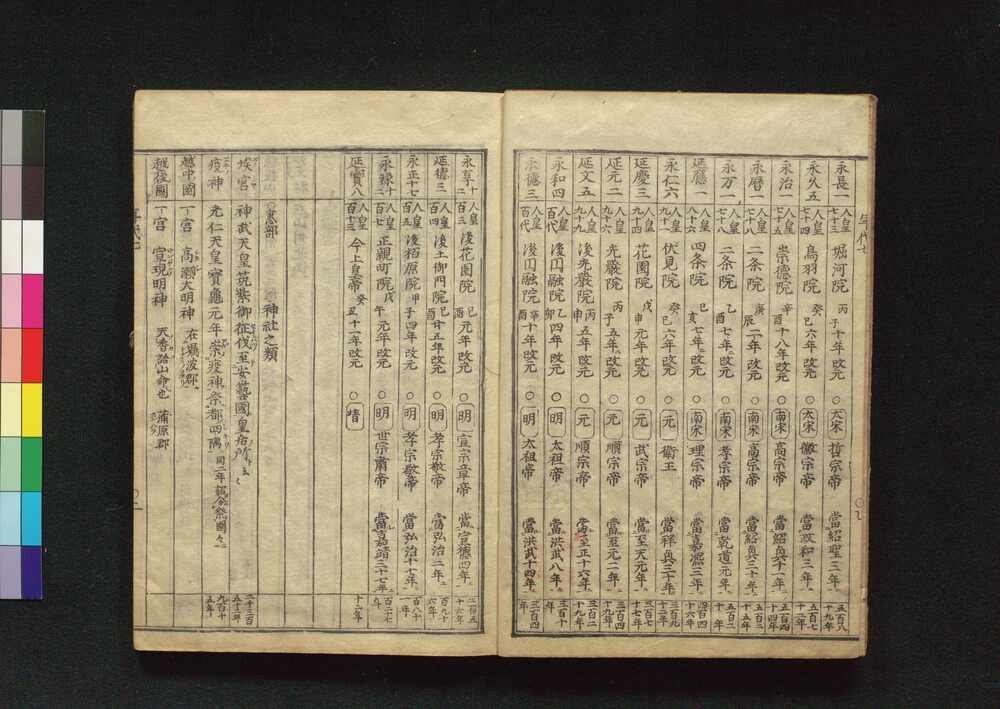 永長一 人皇七十三 堀河院 丙子十年改元 ○ 太宋 哲宗帝 當紹聖三年 五百八十九年
永久五 人皇七十四 鳥羽院 癸巳六年改元 ○ 太宋 徽宗帝 當政和三年 五百七十二年
永治一 人皇七十五 崇德院 辛酉十八年改元 ○ 南宋 高宗帝 當紹興十一年 五百四十四年
永曆一 人皇七十八 二条院 庚辰二年改元 ○ 南宋 高宗帝 當紹興三十年 五百二十五年
永万一 人皇七十八 二条院 乙酉七年改元 ○ 南宋 孝宗帝 當乾道元年 五百二十年
延應一 人皇八十六 四条院 己亥七年改元 ○ 南宋 理宗帝 當嘉熙三年 四百四十六年
永仁六 人皇九十一 伏見院 癸巳六年改元 ○ 元 衛王 當祥興三十年 三百九十二年
延慶三 人皇九十四 花園院 戊申元年改元 ○ 元 武宗帝 當至大元年 三百七十七年
延元二 人皇九十六 光嚴院 丙子五年改元 ○ 元 順宗帝 當至元二年 三百四十九年
延文五 人皇九十九 後光嚴院 丙申五年改元 ○ 元 順宗帝 當至正十六年 三百二十九年
永和四 人皇百代 後円融院 乙卯四年改元 ○ 明 太祖帝 當洪武八年 三百十年
永德三 人皇百代 後円融院 辛酉十年改元 ○ 明 太祖帝 當洪武十四年 三百四年
永享十二 人皇百三 後花園院 己酉元年改元 ○ 明 宣宗章帝 當宣德四年 二百五十六年
延德三 人皇百四 後土御門院 己酉廿五年改元 ○ 明 孝宗敬帝 當弘治二年 百九十六年
永正十七 人皇百五 後柏原院 甲子四年改元 ○ 明 孝宗敬帝 當弘治十七年 百八十一年
永祿十二 人皇百七 正親町院 戊午元年改元 ○ 明 世宗肅帝 當嘉靖三十七年 百二十七年
延寶八 人皇百十三 今上皇帝 癸丑十一年改元 ○ 清 十二年
神社之類
埃宮 神武天皇筑紫御征伐至安藝國皇居所 二千三百五十三年
疫神 光仁天皇寶龜元年祟疫神祭都四隅 同二年 九百十五年
越中國 一宮 高瀬大明神 在礪波郡
越後國 一宮 天香語山命也 蒲原郡